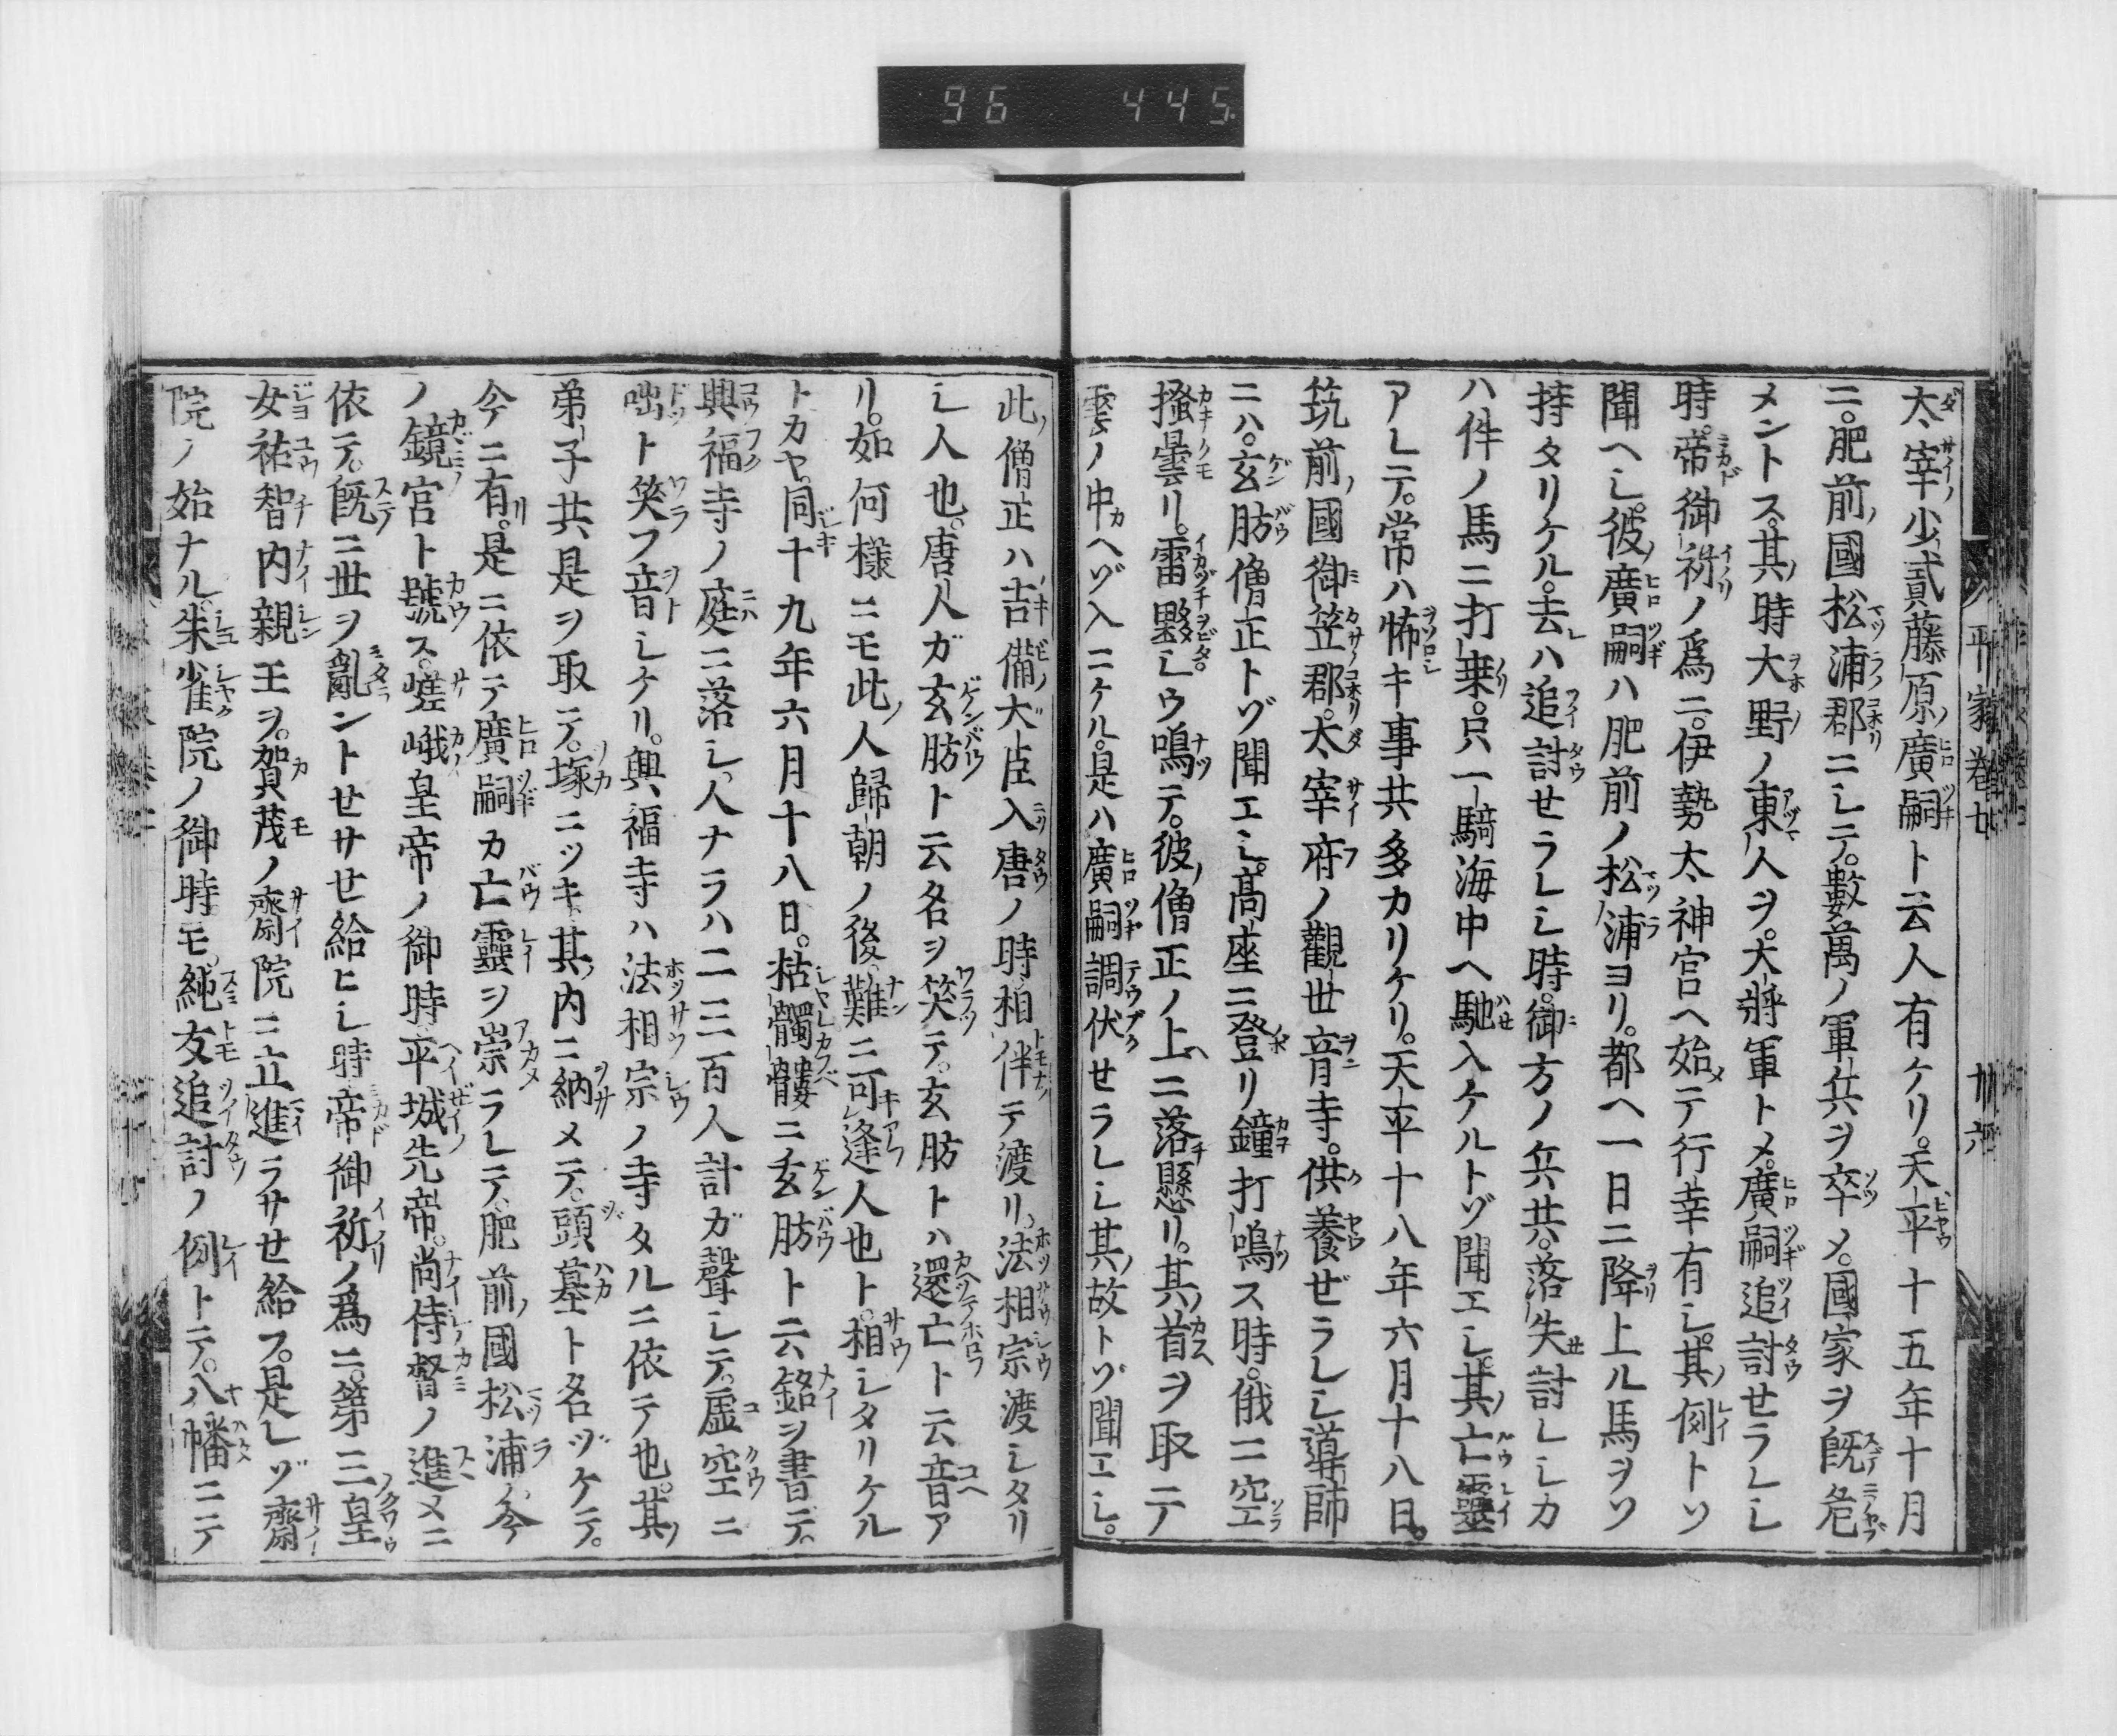 96 445
太宰少貳藤原廣嗣ト云人有ケリ。天平十五年十月
ニ。肥前國松浦郡ニシテ。數萬ノ軍兵ヲ卒メ。國家ヲ既危
メントス。其時大野ノ東人ヲ。大將軍トメ。廣嗣追討せラレシ
時。帝御祈ノ爲ニ。伊勢太神宮ヘ始テ行幸有シ。其例トソ
聞ヘシ。彼廣嗣ハ肥前ノ松浦ヨリ。都ヘ一日ニ降上ル馬ヲソ
持タリケル。去ハ追討せラレシ時。御方ノ兵共。落失討レシカ
ハ件ノ馬ニ打乗。只一騎海中ヘ馳入ケルトゾ聞エシ。其亡靈
アレテ。常ハ怖キ事共多カリケリ。天平十八年六月十八日。
筑前國御笠郡。太宰府ノ觀世音寺。供養ぜラレシ導師
ニハ。玄肪僧正トゾ聞エシ。髙座ニ登リ鐘打鳴ス時。俄ニ空
掻曇リ。雷夥シウ鳴テ。彼僧正ノ上ニ落懸リ。其首ヲ取テ
雲ノ中ヘゾ入ニケル。是ハ廣嗣調伏せラレシ其故トゾ聞エシ。
此僧正ハ吉備大臣入唐ノ時相伴テ渡リ、法相宗渡シタリ
シ人也。唐人ガ玄肪ト云名ヲ笑テ。玄肪トハ還亡ト云音ア
リ。如何樣ニモ此人歸朝ノ後難ニ可逢人也ト。相シタリケル
トカヤ。同十九年六月十八日。枯髑髏ニ玄肪ト云銘ヲ書テ。
興福寺ノ庭ニ落シ、人ナラハ二三百人計ガ聲シテ。虚空ニ
咄ト笑フ音シケリ。興福寺ハ法相宗ノ寺タルニ依テ也。其
弟子共是ヲ取テ。塚ニツキ其内ニ納メテ。頭墓ト名ヅケテ。
今ニ有。是ニ依テ廣嗣カ亡靈ヲ崇ラレテ、肥前國松浦今
ノ鏡宮ト號ス。嵯峨皇帝ノ御時平城先帝。尚侍督ノ進メニ
依テ。既ニ世ヲ亂ントせサせ給ヒシ時帝御祈ノ爲ニ。第三皇
女祐智内親王ヲ。賀茂ノ齋院ニ立進ラサせ給フ。是レゾ齋
院ノ始ナル。朱雀院ノ御時モ。純友追討ノ例トテ。八幡ニテ
平家巻廿
卅六